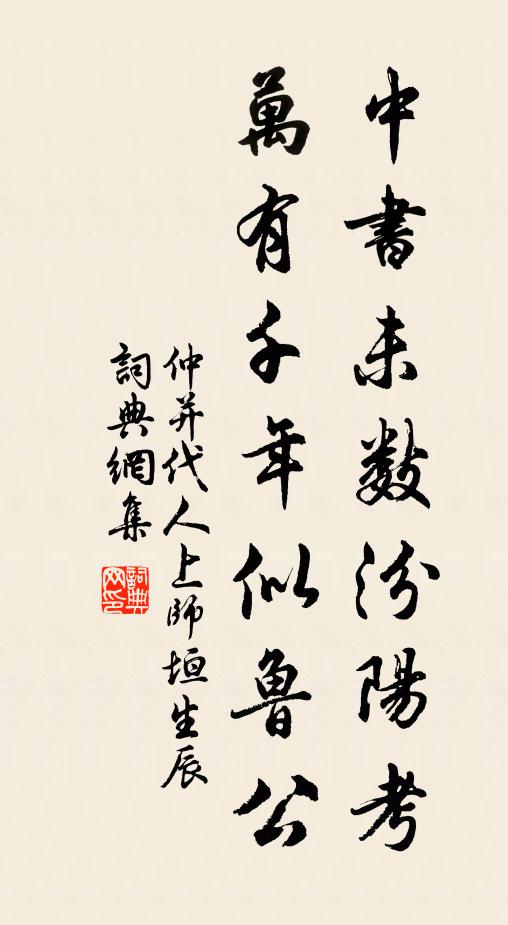 中書未數汾陽考
萬有千年似魯公
仲并代人上師垣生辰
詞典網集
詞典網印